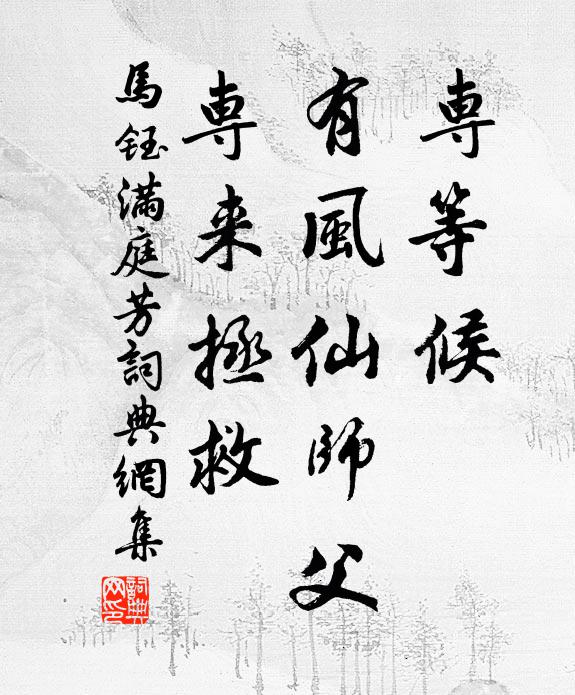 専等候
有風仙師父
専来拯救
馬鈺満庭芳詞典網集
詞典网印